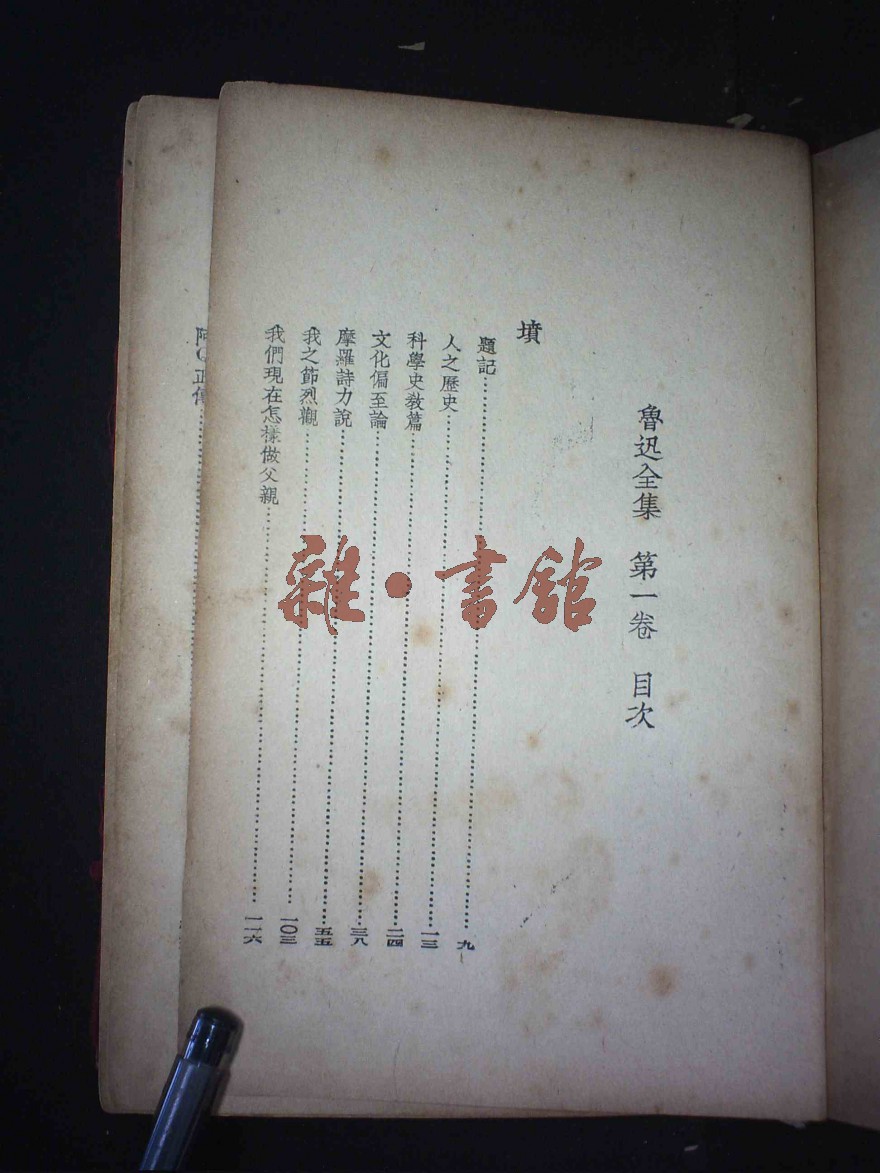 魯迅全集 第一卷 目次
墳
題記……九
人之歷史……一三
科學史敎篇……二四
文化偏至論……三八
摩羅詩力說……五五
我之節烈觀……一〇三
我們現在怎樣做父親……一一六
阿Q正傳……
雜·書館